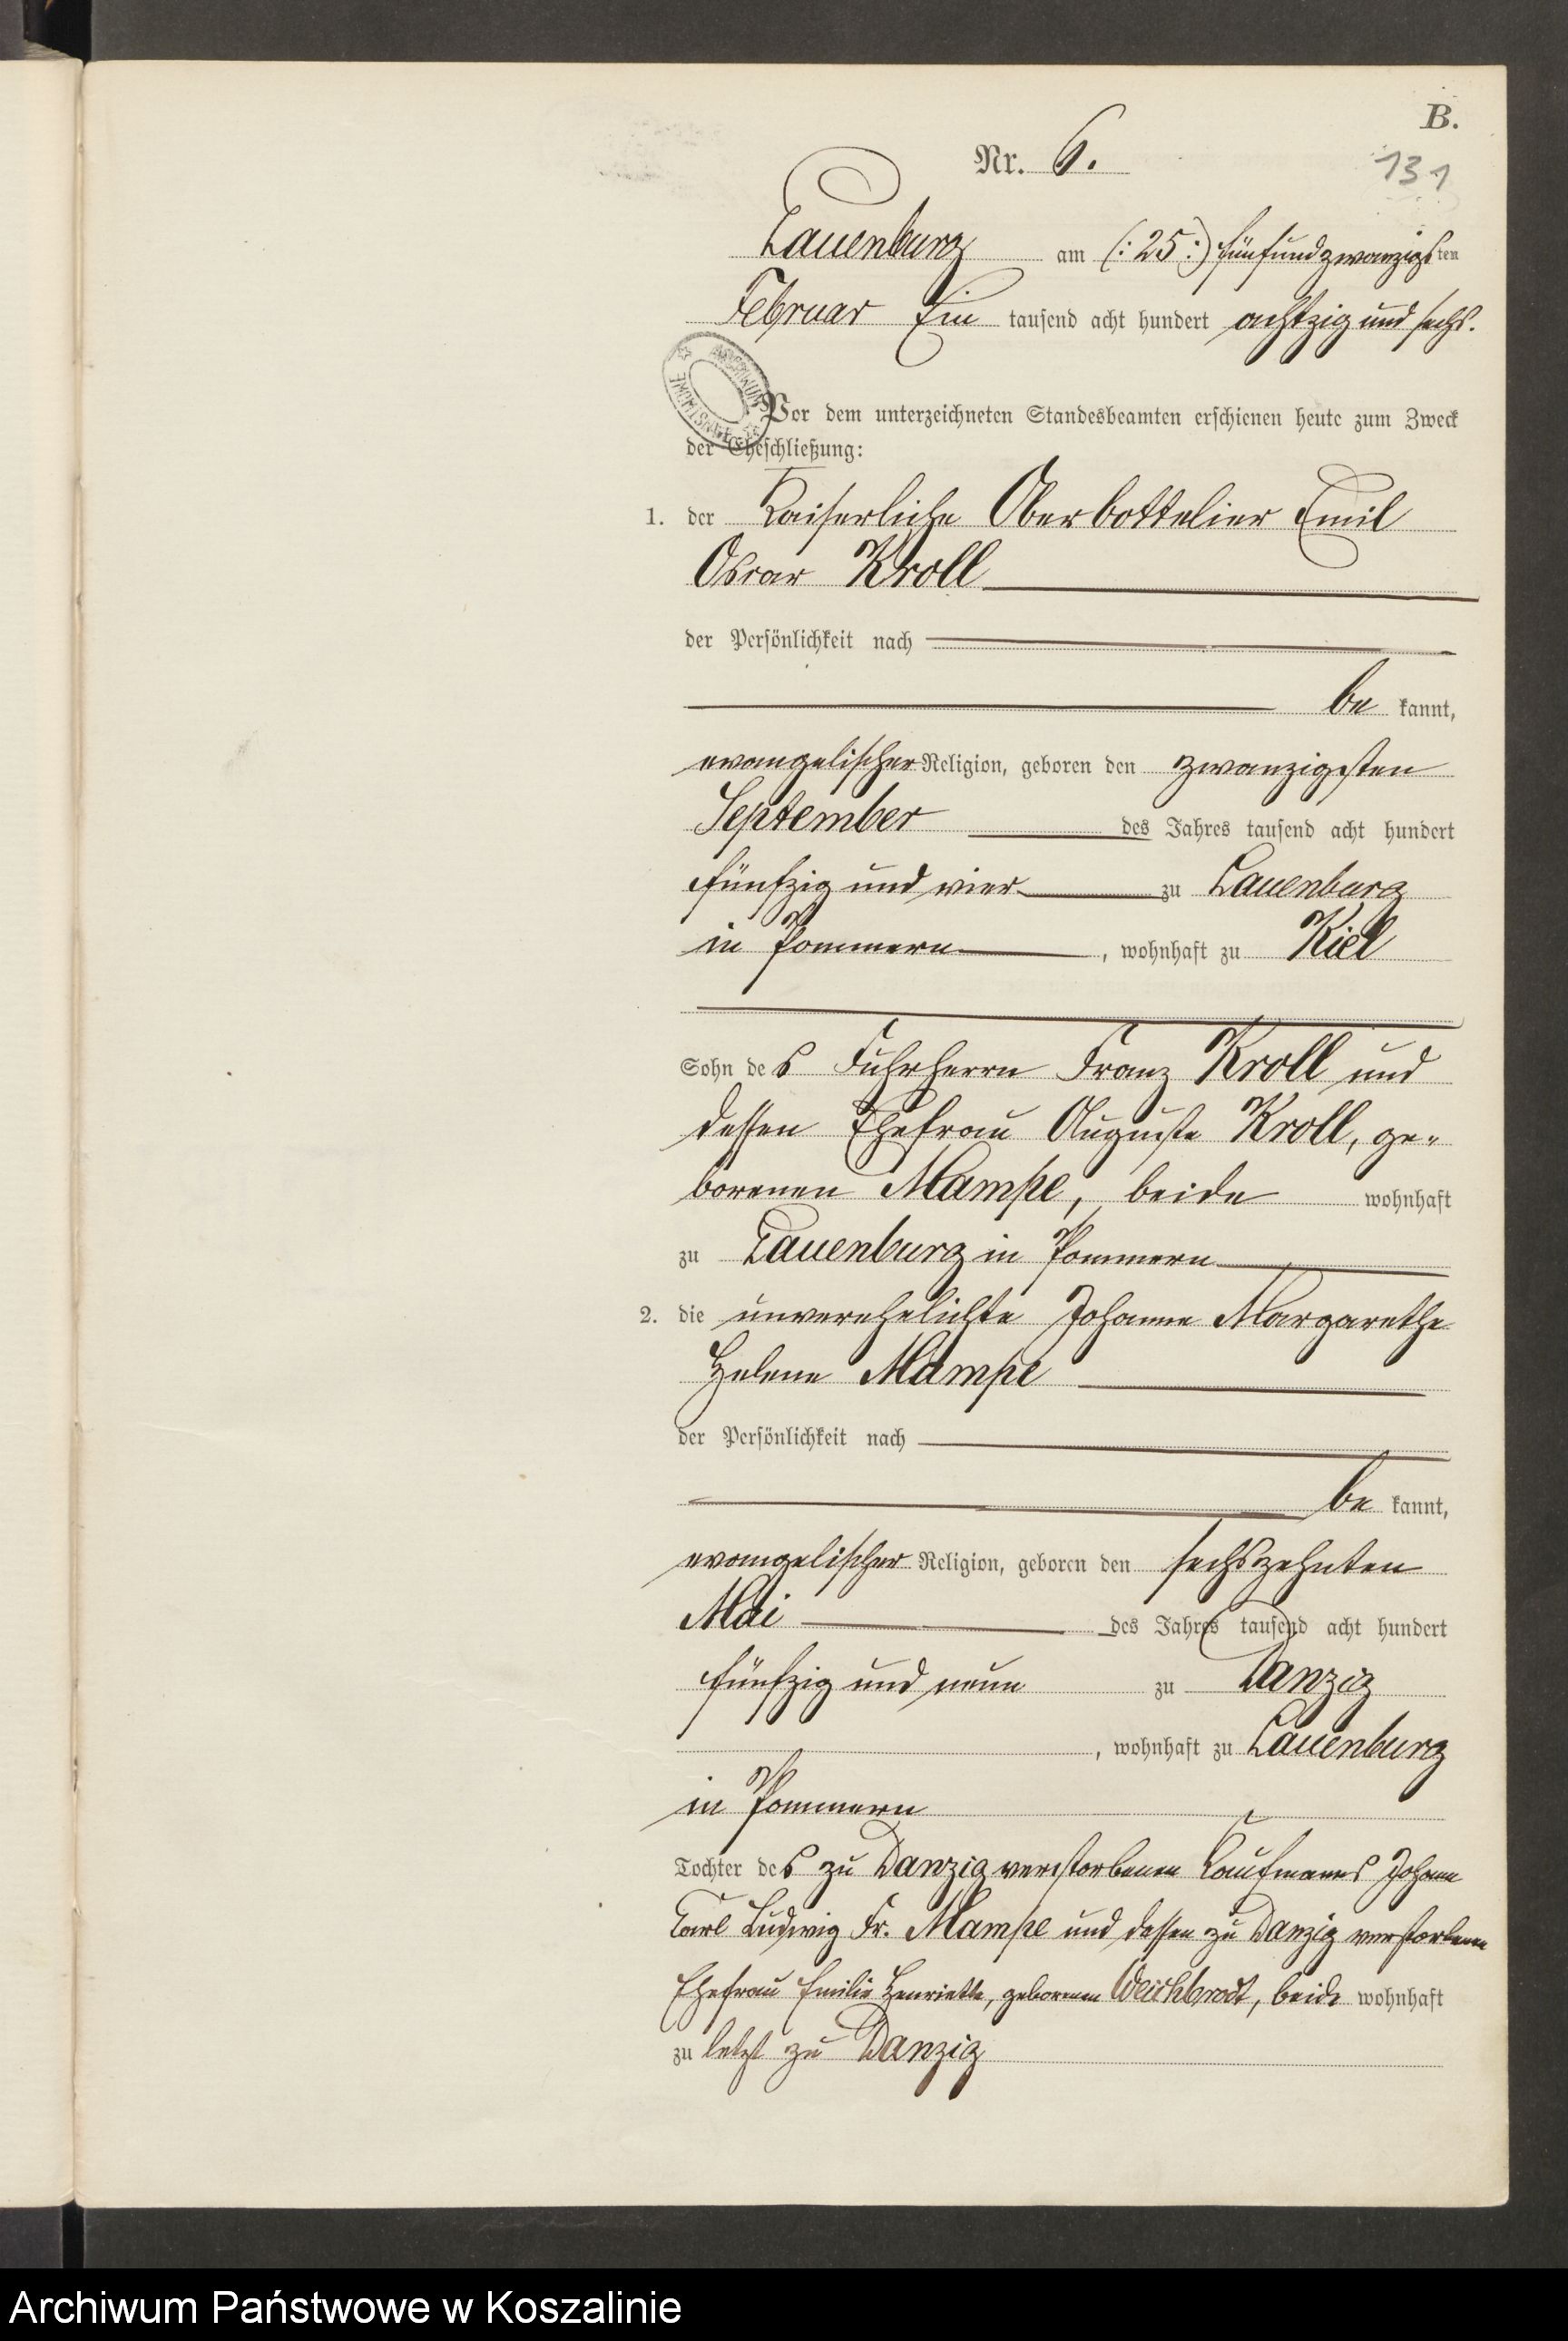 B.
Nr. 6.
131
Lauenburg am (: 25 :) fünfundzwanzigsten
Februar Ein tausend acht hundert achtzig und sechs.
Vor dem unterzeichneten Standesbeamten erschienen heute zum Zweck
der Eheschließung:
1. der Kaiserliche Oberbottelier Emil
Oscar Kroll
der Persönlichkeit nach
be kannt,
evangelischer Religion, geboren den zwanzigsten
September des Jahres tausend acht hundert
fünfzig und vier zu Lauenburg
in Pommern, wohnhaft zu Kiel
Sohn des Fuhrherrn Franz Kroll und
dessen Ehefrau Auguste Kroll, ge-
borenen Mampe, beide wohnhaft
zu Lauenburg in Pommern
2. die unverehelichte Johanne Margarethe
Helene Mampe
der Persönlichkeit nach
be kannt,
evangelischer Religion, geboren den sechszehnten
Mai des Jahres tausend acht hundert
fünfzig und neun zu Danzig
, wohnhaft zu Lauenburg
in Pommern
Tochter des zu Danzig verstorbenen Kaufmanns Johann
Carl Ludwig Fr. Mampe und dessen zu Danzig verstorbene
Ehefrau Emilie Henriette, geborenen Weichbrodt, beide wohnhaft
zu letzt zu Danzig
Archiwum Państwowe w Koszalinie